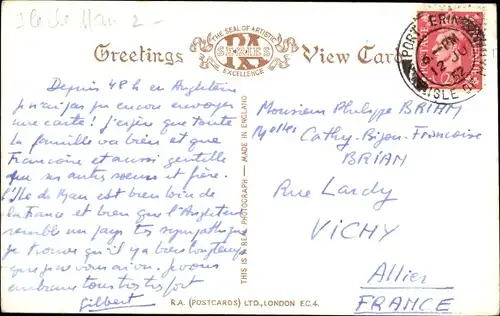 Ile de Man 2 -
THE SEAL OF ARTISTIC
Greetings RA SERIES View Card
EXCELLENCE
PORT ERIN
PM
12 JU
52
ISLE OF MAN
Depuis 48 h en Angleterre
je n'ai pas pu encore envoyer
une carte! J'espère que toute
la famille va bien et que
Francoise et aussi gentille
que ses autres soeurs et frère.
l'Ile de Man est bien loin de
la France et bien que l'Angleterre
semble un pays très sympathique
je trouve qu'il y a bien longtemps
que je vous ai vu. je vous
embrasse tous très très fort
Gilbert
THIS IS A REAL PHOTOGRAPH — MADE IN ENGLAND
Monsieur Philippe BRIAM
Melles Cathy-Bijou-Francoise
BRIAM
Rue Lardy
VICHY
Allier
FRANCE
R.A. (POSTCARDS) LTD., LONDON E.C.4.